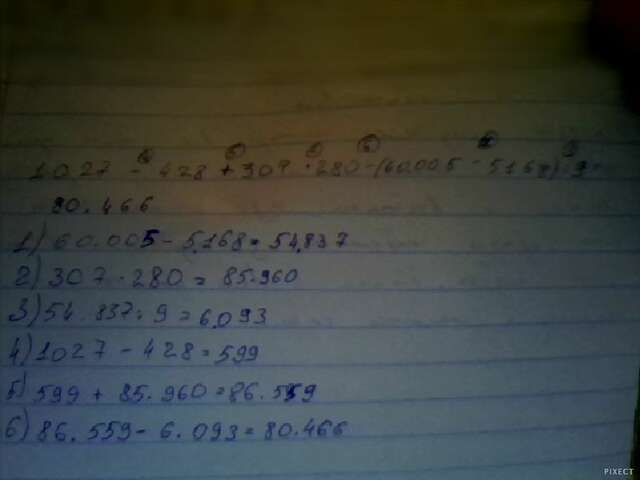 1027 - 428 + 307 · 280 - (60.005 - 5168) : 9 =
80.466
1) 60.005 - 5.168 = 54.837
2) 307 · 280 = 85.960
3) 54.837 : 9 = 6.093
4) 1027 - 428 = 599
5) 599 + 85.960 = 86.559
6) 86.559 - 6.093 = 80.466
PIXECT